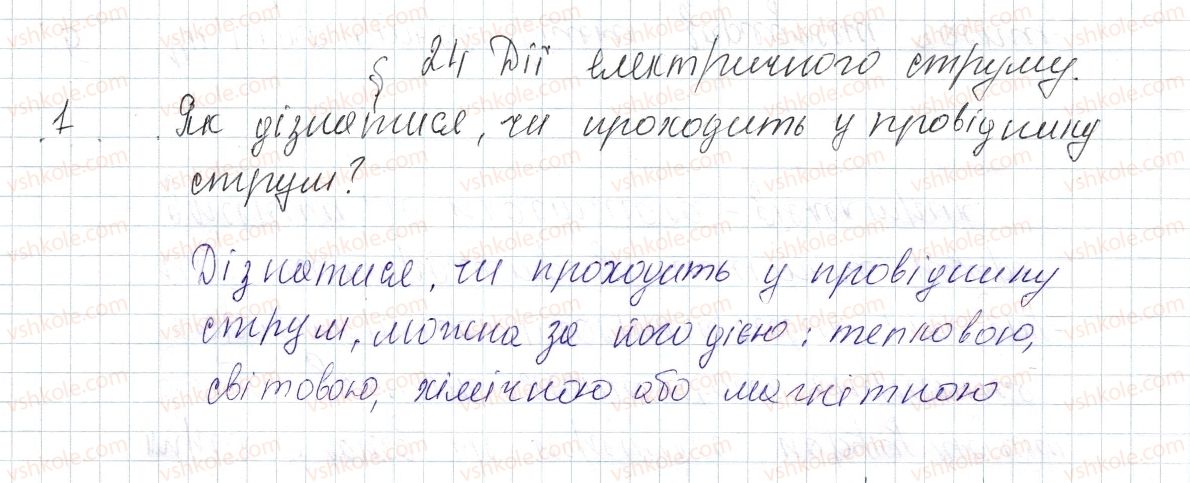 § 24 Дії електричного струму.
1 Як дізнатися, чи проходить у провіднику
струм?
Дізнатися, чи проходить у провіднику
струм, можна за його дією: тепловою,
світовою, хімічною або магнітною